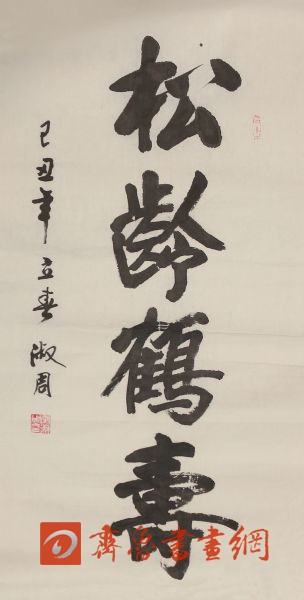 松齡鶴壽
己丑年立春淑周
齊魯書畫網